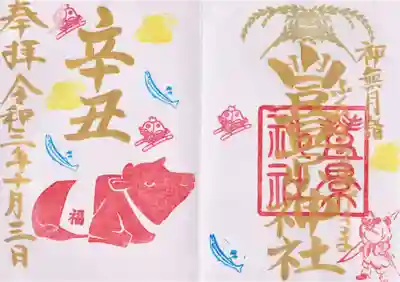 神無月詣
豊景神社
豊景
神社
辛丑
福
奉拝 令和三年十月三日